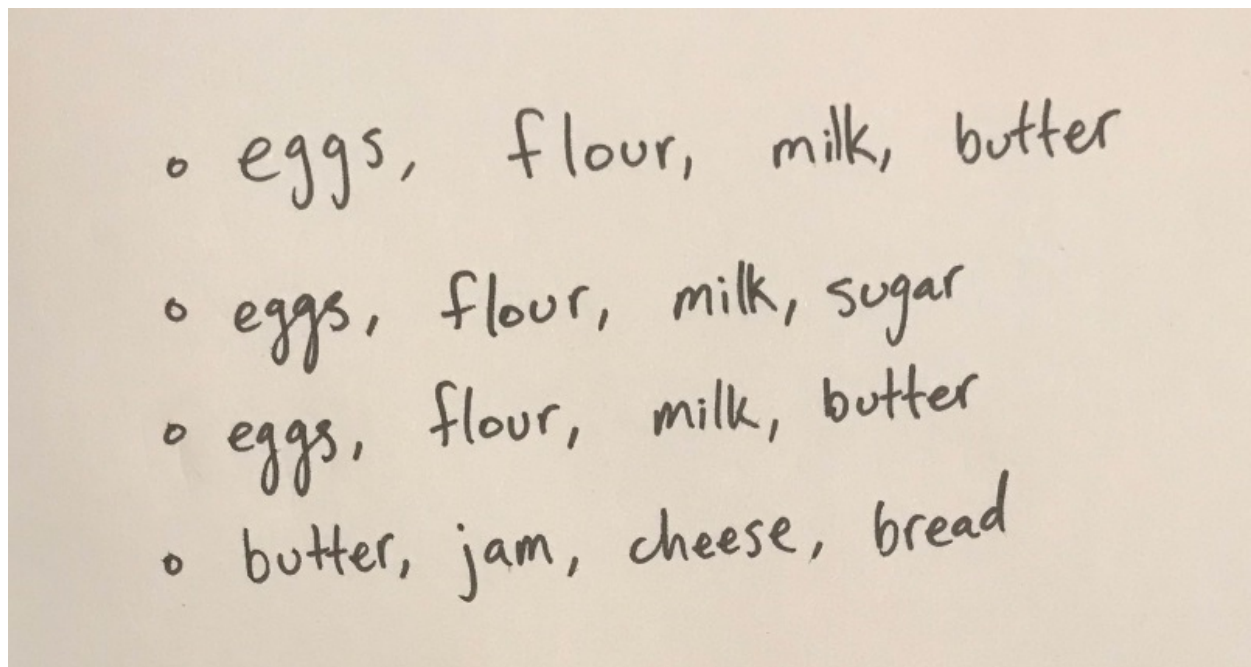 • eggs, flour, milk, butter
• eggs, flour, milk, sugar
• eggs, flour, milk, butter
• butter, jam, cheese, bread